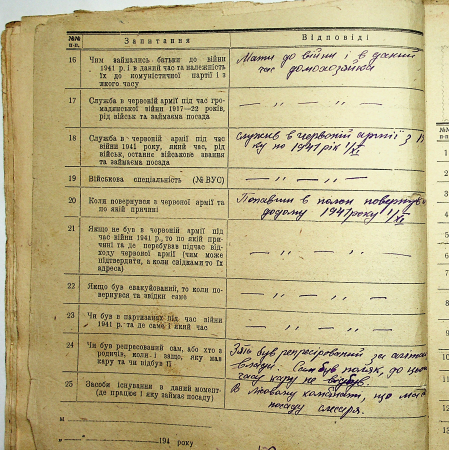 №№ п-п. Запитання Відповіді
16 Чим займались батьки до війни
1941 р. і в даний час та належність
їх до комуністичної партії і з
якого часу
Мати до війни і в даний
час домохазяйка
17 Служба в червоній армії під час гро-
мадянської війни 1917—22 років,
рід військ та займаєма посада
— „ — „ —
18 Служба в червоній армії під час
війни 1941 року, який час, рід
військ, останнє військове звання
та займаєма посада
Служив в червоній армії з
ку по 1941 рік 1/XI
19 Військова спеціальність (№ ВУС)
— „ — „ —
20 Коли повернувся з червоної армії та
по якій причині
Попавши в полон повернув
додому 1941 року 1/XI
21 Якщо не був в червоній армії під
час війни 1941 р., то по якій при-
чині та де перебував підчас від-
ходу червоної армії (чим може
підтвердити, а коли свідками то їх
адреса)
— „ — „ —
22 Якщо був евакуйований, то коли по-
вернувся та звідки саме
— „ — „ —
23 Чи був в партизанах під час війни
1941 р. та де саме і який час
— „ — „ —
24 Чи був репресований сам, або хто з
родичів, коли і защо, яку мав
кару та чи відбув її
був репресірований за
влади. Сам був поляк, до
часу кару не відбув.
25 Засоби існування в даний момент-
(де працює і яку займає посаду)
В
посаду слюсаря.
м
194 року